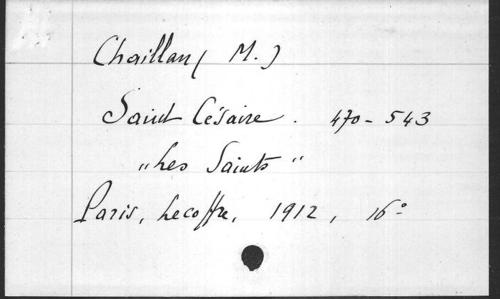 Chaillan ( M. )
Saint Césaire. 470 - 543
"Les Saints"
Paris, Lecoffre, 1912, 16°